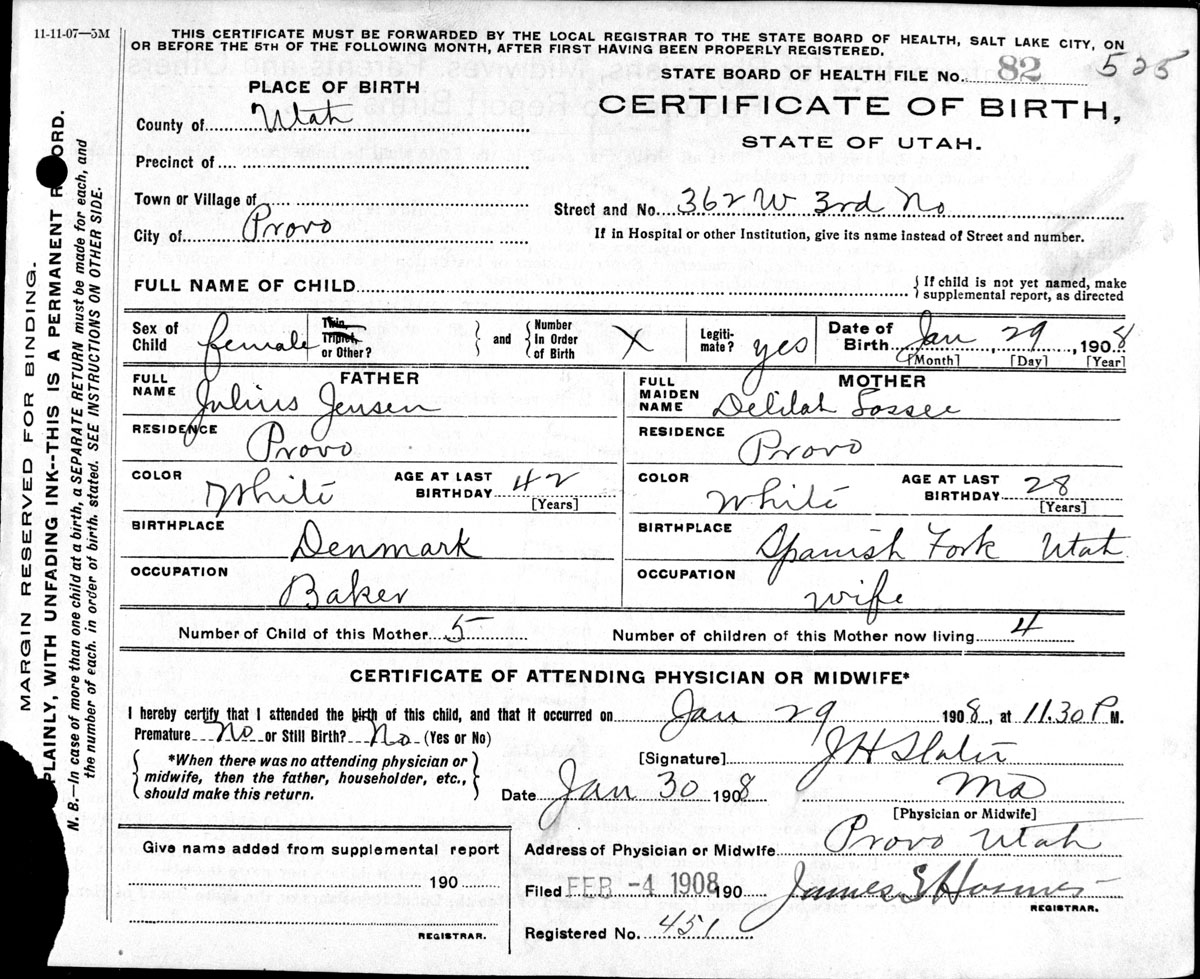 11-11-07—5M
THIS CERTIFICATE MUST BE FORWARDED BY THE LOCAL REGISTRAR TO THE STATE BOARD OF HEALTH, SALT LAKE CITY, ON
OR BEFORE THE 5TH OF THE FOLLOWING MONTH, AFTER FIRST HAVING BEEN PROPERLY REGISTERED.
STATE BOARD OF HEALTH FILE No. 82 525
PLACE OF BIRTH
CERTIFICATE OF BIRTH,
STATE OF UTAH.
County of Utah
Precinct of
Town or Village of
Street and No. 362 W 3rd No
City of Provo
If in Hospital or other Institution, give its name instead of Street and number.
FULL NAME OF CHILD
{ If child is not yet named, make
supplemental report, as directed
Sex of Child female
Twin, Triplet, or Other?
} and { Number In Order of Birth X
Legiti-mate? yes
Date of Birth Jan 29, 1908
[Month] [Day] [Year]
FATHER
FULL NAME Julius Jensen
RESIDENCE Provo
COLOR White
AGE AT LAST BIRTHDAY 42 [Years]
BIRTHPLACE Denmark
OCCUPATION Baker
MOTHER
FULL MAIDEN NAME Delilah
RESIDENCE Provo
COLOR White
AGE AT LAST BIRTHDAY 28 [Years]
BIRTHPLACE Spanish Fork Utah
OCCUPATION wife
Number of Child of this Mother 5
Number of children of this Mother now living 4
CERTIFICATE OF ATTENDING PHYSICIAN OR MIDWIFE*
I hereby certify that I attended the birth of this child, and that it occurred on Jan 29 1908, at 11.30 P M.
Premature No or Still Birth? No (Yes or No)
{ *When there was no attending physician or
midwife, then the father, householder, etc.,
should make this return. }
[Signature] J H Slater
Date Jan 30 1908 MD
[Physician or Midwife]
Address of Physician or Midwife Provo Utah
Give name added from supplemental report
190
REGISTRAR.
Filed FEB -4 1908 190 James E
REGISTRAR.
Registered No. 451
MARGIN RESERVED FOR BINDING.
PLAINLY, WITH UNFADING INK--THIS IS A PERMANENT RECORD.
N. B.—In case of more than one child at a birth, a SEPARATE RETURN must be made for each, and
the number of each, in order of birth, stated. SEE INSTRUCTIONS ON OTHER SIDE.